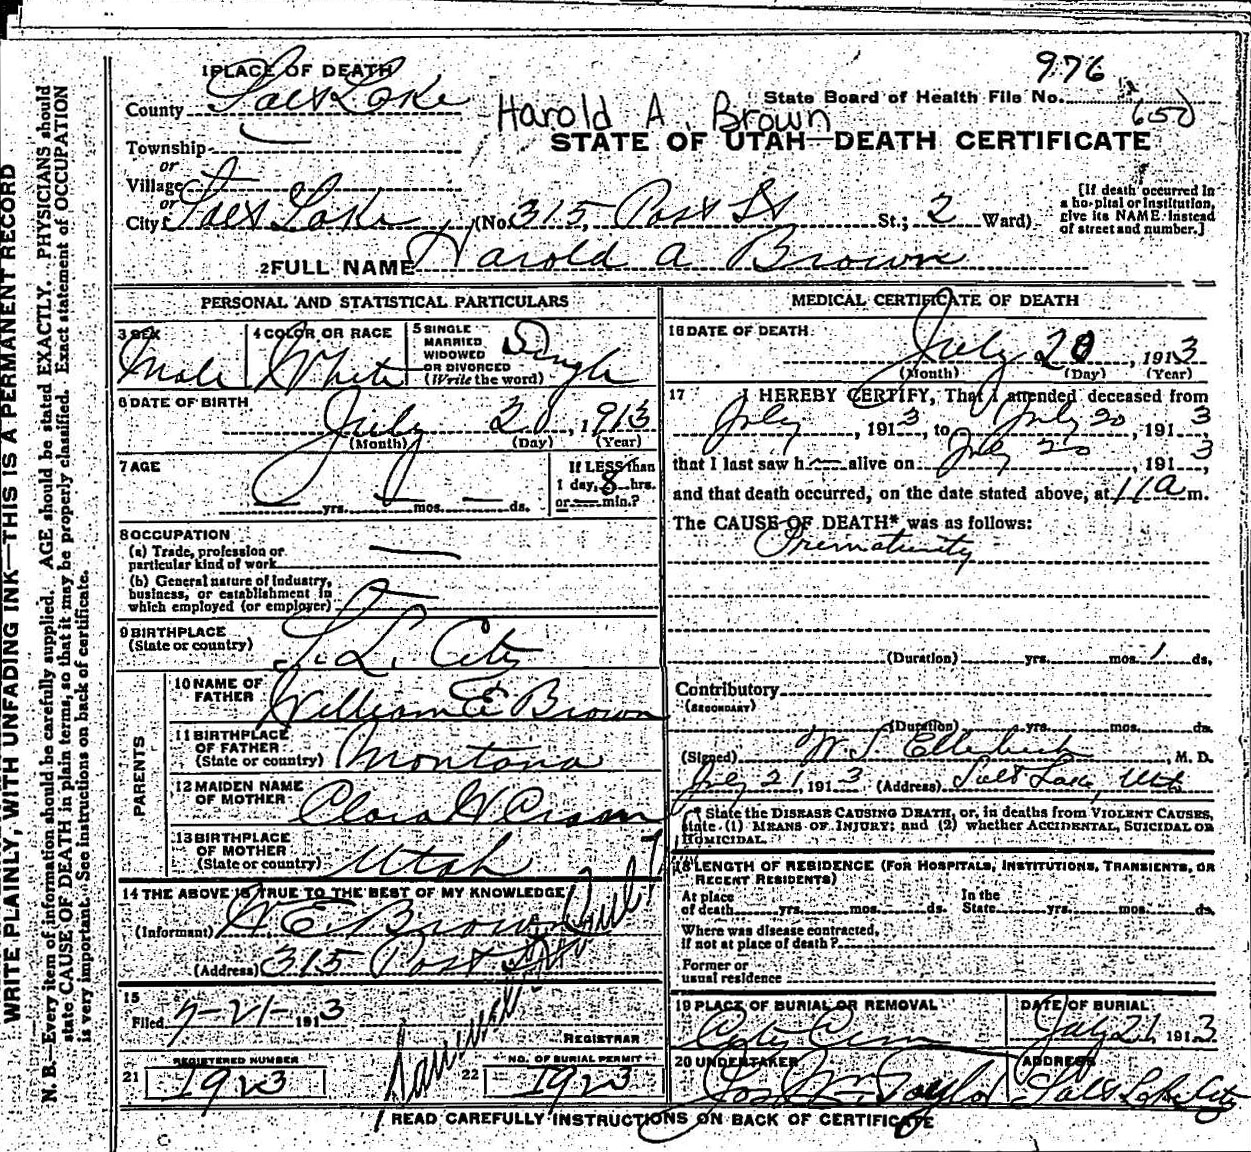 WRITE PLAINLY, WITH UNFADING INK—THIS IS A PERMANENT RECORD
N. B.—Every item of information should be carefully supplied. AGE should be stated EXACTLY. PHYSICIANS should
state CAUSE OF DEATH in plain terms, so that it may be properly classified. Exact statement of OCCUPATION
is very important. See instructions on back of certificate.
976
1 PLACE OF DEATH
County Salt Lake
State Board of Health File No.
Harold A. Brown
650
STATE OF UTAH—DEATH CERTIFICATE
Township
or
Village
or
City Salt Lake (No. 315, Post St St.; 2 Ward)
[If death occurred in
a hospital or institution,
give its NAME instead
of street and number.]
2 FULL NAME Harold A Brown
PERSONAL AND STATISTICAL PARTICULARS
3 SEX
Male
4 COLOR OR RACE
White
5 SINGLE
MARRIED
WIDOWED
OR DIVORCED
(Write the word)
Single
6 DATE OF BIRTH
July 20, 1913
(Month) (Day) (Year)
7 AGE
yrs. mos. ds.
If LESS than
1 day, 8 hrs.
or — min.?
8 OCCUPATION
(a) Trade, profession or
particular kind of work
(b) General nature of Industry,
business, or establishment in
which employed (or employer)
9 BIRTHPLACE
(State or country)
S. L. City
PARENTS
10 NAME OF
FATHER
William E Brown
11 BIRTHPLACE
OF FATHER
(State or country)
Montana
12 MAIDEN NAME
OF MOTHER
Clara
13 BIRTHPLACE
OF MOTHER
(State or country)
Utah
14 THE ABOVE IS TRUE TO THE BEST OF MY KNOWLEDGE
(Informant) W. E. Brown
(Address) 315 Post St
15
Filed 7-21-1913
REGISTRAR
REGISTERED NUMBER
21 1923
NO. OF BURIAL PERMIT
22 1923
MEDICAL CERTIFICATE OF DEATH
16 DATE OF DEATH
July 20, 1913
(Month) (Day) (Year)
17 I HEREBY CERTIFY, That I attended deceased from
July, 1913, to July 20, 1913,
that I last saw h— alive on July 20, 1913,
and that death occurred, on the date stated above, at 11 a m.
The CAUSE OF DEATH* was as follows:
Prematurity
(Duration) yrs. mos. 1 ds.
Contributory
(SECONDARY)
(Duration) yrs. mos. ds.
(Signed) W S Ellerbeck, M. D.
July 21, 1913 (Address) Salt Lake, Utah
* State the DISEASE CAUSING DEATH, or, in deaths from VIOLENT CAUSES,
state (1) MEANS OF INJURY; and (2) whether ACCIDENTAL, SUICIDAL OR
HOMICIDAL.
18 LENGTH OF RESIDENCE (FOR HOSPITALS, INSTITUTIONS, TRANSIENTS, OR
RECENT RESIDENTS)
At place
of death yrs. mos. ds. In the
State yrs. mos. ds.
Where was disease contracted,
if not at place of death?
Former or
usual residence
19 PLACE OF BURIAL OR REMOVAL
City Cem
DATE OF BURIAL
July 21, 1913
20 UNDERTAKER
Jos Wm Taylor
ADDRESS
Salt Lake City
READ CAREFULLY INSTRUCTIONS ON BACK OF CERTIFICATE